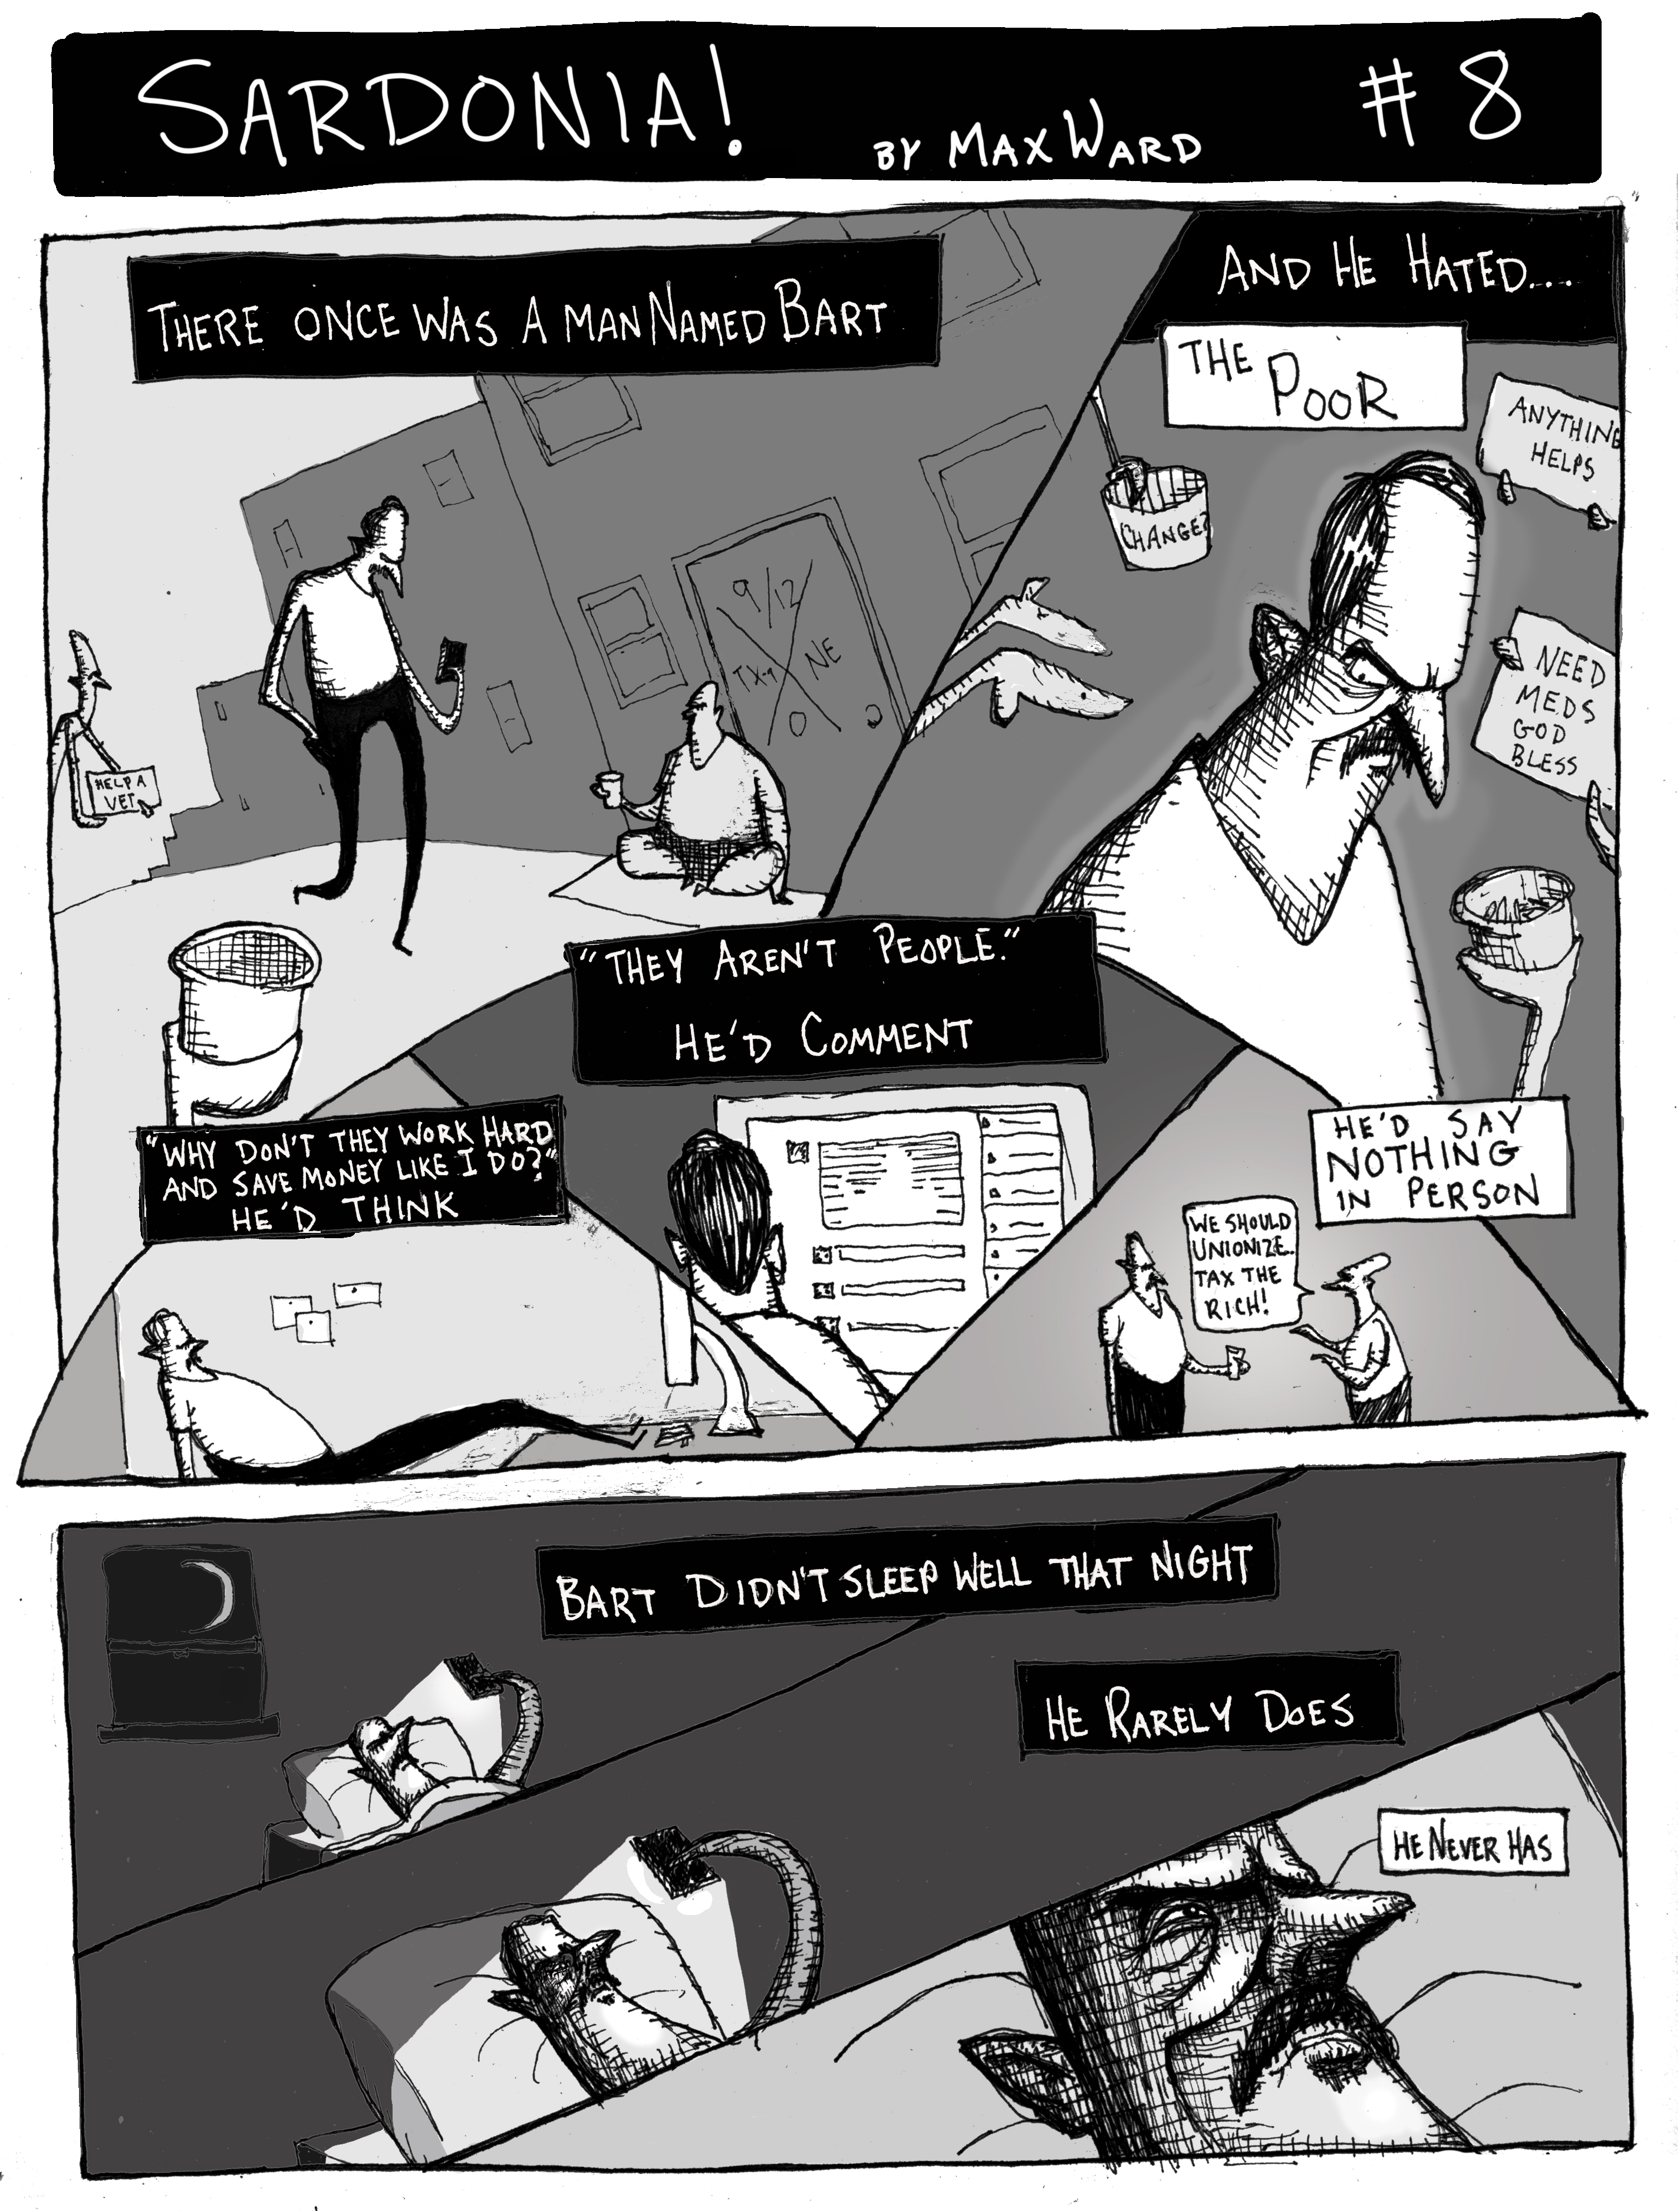 SARDONIA!
BY MAX WARD
# 8
THERE ONCE WAS A MAN NAMED BART
HELP A
VET
9/12
TX-1
NE
O
AND HE HATED....
THE POOR
CHANGE?
ANYTHING
HELPS
NEED
MEDS
GOD
BLESS
"THEY AREN'T PEOPLE."
HE'D COMMENT
"WHY DON'T THEY WORK HARD
AND SAVE MONEY LIKE I DO?"
HE'D THINK
HE'D SAY
NOTHING
IN PERSON
WE SHOULD
UNIONIZE..
TAX THE
RICH!
BART DIDN'T SLEEP WELL THAT NIGHT
HE RARELY DOES
HE NEVER HAS